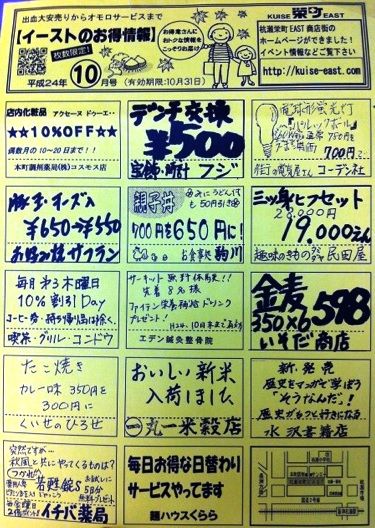 出血大安売りからオモロサービスまで
[イーストのお得情報]
枚数限定!
平成24年 10月号 (有効期限:10月31日)
お得意さんに
おトクな情報を
こっそりお届け
KUISE 栄町 EAST
杭瀬栄町 EAST 商店街の
ホームページができました!
イベント情報などご覧下さい
http://kuise-east.com
店内化粧品
★☆10%OFF★☆
偶数月の10～20日まで!!
本町調剤薬局(株)コスモス店
デンチ交換
¥500
宝飾・時計 フジ
電球形蛍光灯
「パルックボール」
700円で
街の電気屋さん コーデン社
豚玉・チーズ入
¥650→¥550
お好み焼 サフラン
親子丼
も50円引き
700円を650円に!
お食事処 駒川
三ッ矢ヒフセット
28,000円
19,000えん
趣味のきもの 民田屋
毎月第3木曜日
10%割引Day
コーヒー券・持ち帰り品は除く。
喫茶・グリル・コンドウ
サーキット無料体験!!
先着8名様
ファイテン栄養補給ドリンク
プレゼント!
エデン鍼灸整骨院
金麦
350×6 598
いそだ商店
たこ焼き
カレー味 350円を
300円に
くいせのひろせ
おいしい新米
入荷ました
丸一米穀店
新・発売
歴史をマンガで学ぼう
「そうなんだ!」
水沢書籍店
突然ですが…
秋風と共にやってくるものは?
お試しに
5日分
無料プレゼント
イチバ薬局
毎日お得な日替わり
サービスやってます
麺ハウスくらら